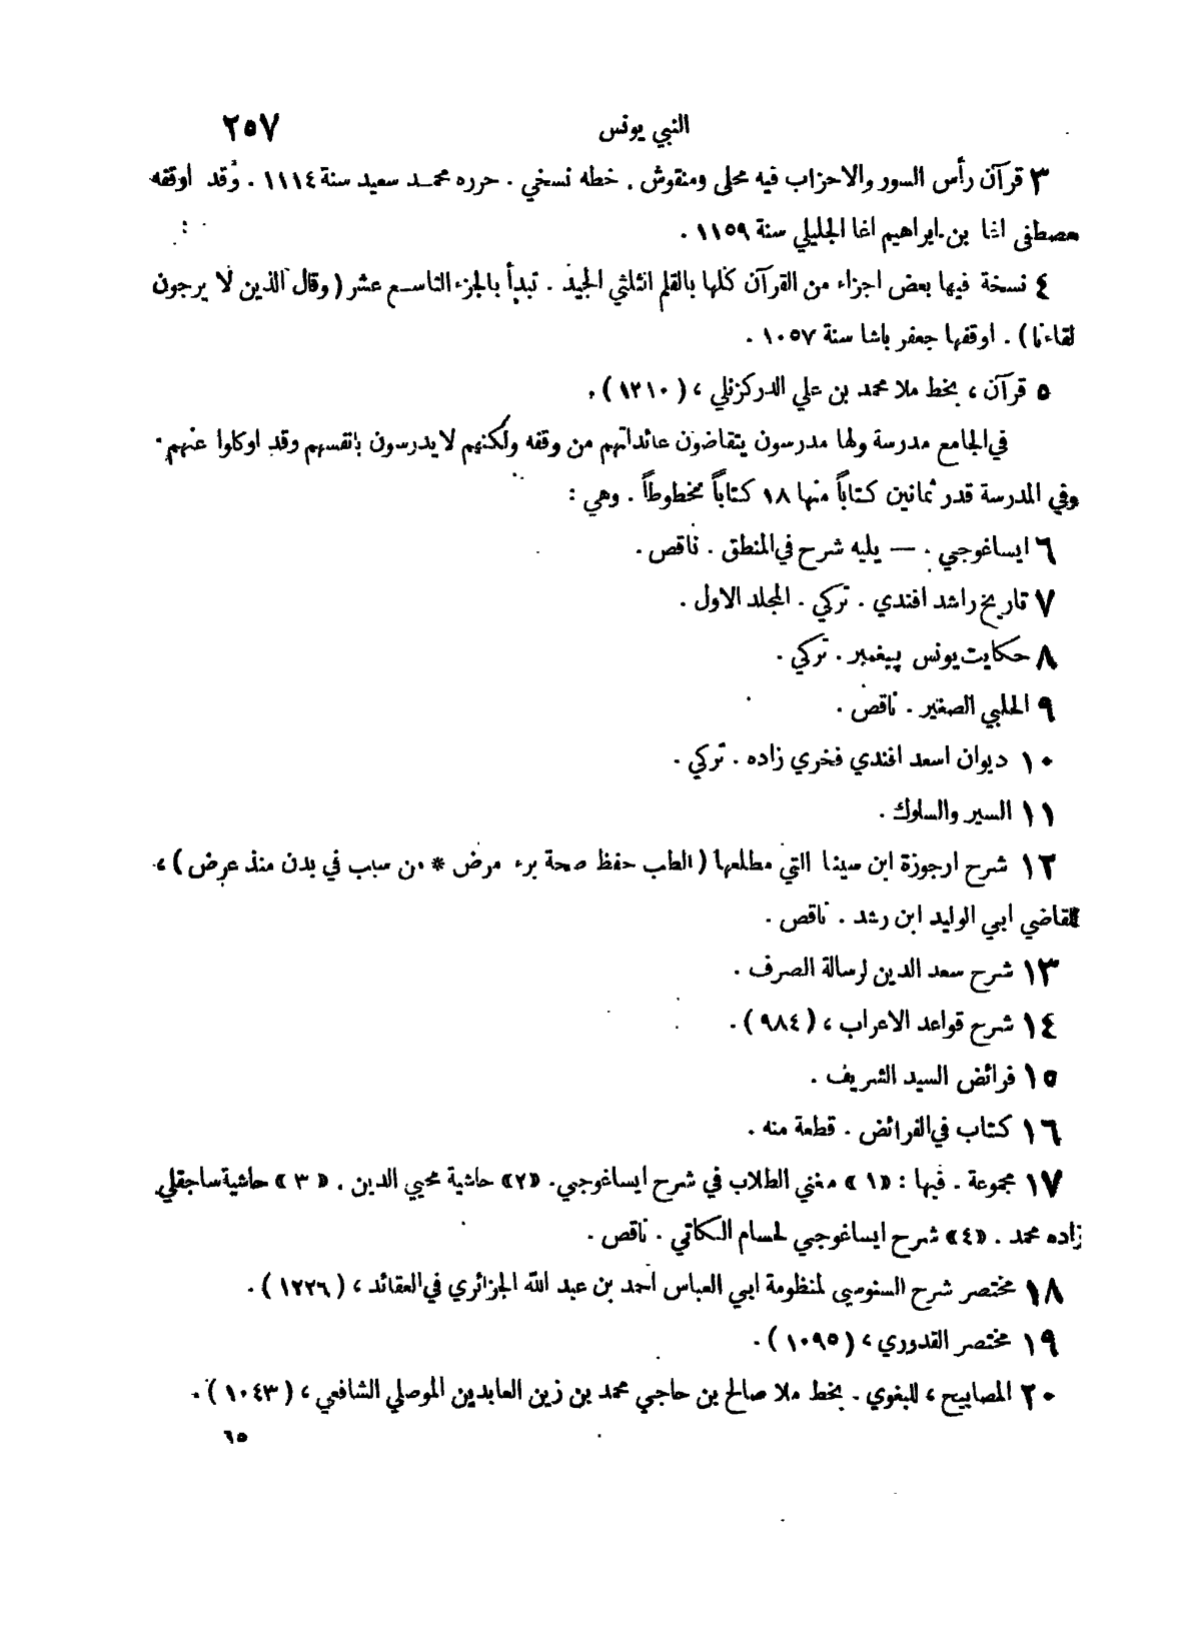 النبي يونس ٢٥٧
٣ قرآن رأس السور والاحزاب فيه محلى ومنقوش . خطه نسخي . حرره محمد سعيد سنة ١١١٤ . وقد اوقفه
مصطفى اغا بن ابراهيم اغا الجليلي سنة ١١٥٩ .
٤ نسخة فيها بعض اجزاء من القرآن كلها بالقلم الثلثي الجيد . تبدأ بالجزء التاسع عشر ( وقال الذين لا يرجون
لقاءنا ) . اوقفها جعفر باشا سنة ١٠٥٧ .
٥ قرآن ، بخط ملا محمد بن علي الدركزنلي ، ( ١٢١٠ ) .
في الجامع مدرسة ولها مدرسون يتقاضون عائداتهم من وقفه ولكنهم لا يدرسون بانفسهم وقد اوكلوا عنهم .
وفي المدرسة قدر ثمانين كتاباً منها ١٨ كتاباً مخطوطاً . وهي :
٦ ايساغوجي . — يليه شرح في المنطق . ناقص .
٧ تاريخ راشد افندي . تركي . المجلد الاول .
٨ حكايت يونس پيغمبر . تركي .
٩ الحلبي الصغير . ناقص .
١٠ ديوان اسعد افندي فخري زاده . تركي .
١١ السير والسلوك .
١٢ شرح ارجوزة ابن سينا التي مطلعها ( الطب حفظ صحة برء مرض * من سبب في بدن منذ عرض ) ،
للقاضي ابي الوليد ابن رشد . ناقص .
١٣ شرح سعد الدين لرسالة الصرف .
١٤ شرح قواعد الاعراب ، ( ٩٨٤ ) .
١٥ فرائض السيد الشريف .
١٦ كتاب في الفرائض . قطعة منه .
١٧ مجموعة . فيها : «١» مغني الطلاب في شرح ايساغوجي . «٢» حاشية محيي الدين . «٣» حاشية ساجقلي
زاده محمد . «٤» شرح ايساغوجي لحسام الكاتي . ناقص .
١٨ مختصر شرح السنوسي لمنظومة ابي العباس احمد بن عبد الله الجزائري في العقائد ، ( ١٢٢٦ ) .
١٩ مختصر القدوري ، ( ١٠٩٥ ) .
٢٠ المصابيح ، للبغوي . بخط ملا صالح بن حاجي محمد بن زين العابدين الموصلي الشافعي ، ( ١٠٤٣ ) .
٦٥